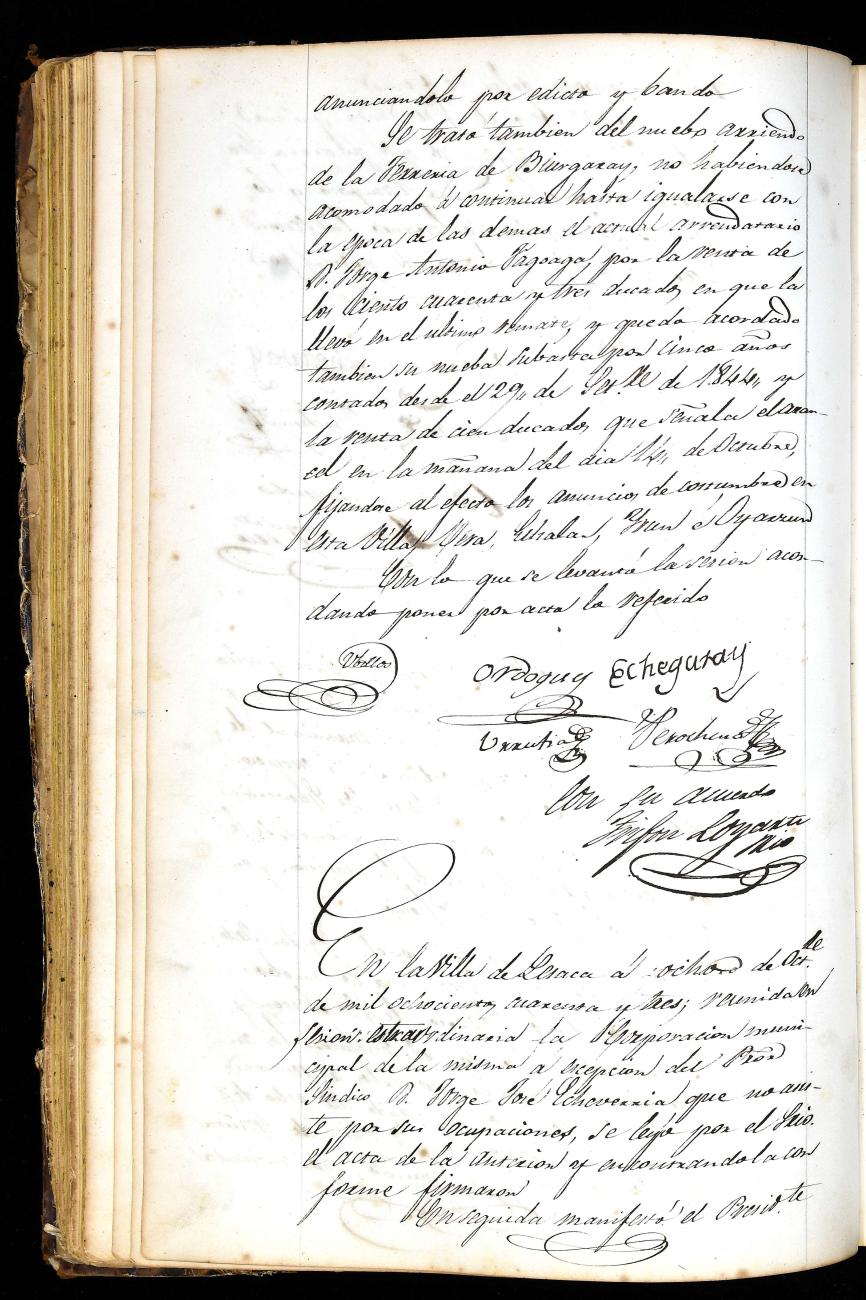 anunciandolo por edicto y bando
Se trató tambien del nuebo arriendo
de la Ferreria de Biurgaray, no habiendose
acomodado á continuar hasta igualarse con
la epoca de las demas el actual arrendatario
D. Jorge Antonio Fagoaga, por la renta de
los ciento cuarenta y tres ducados en que la
llevó en el ultimo remate, y queda acordado
tambien su nueba subasta por cinco años
contados desde el 29,, de Set.re de 1844,, y
la renta de cien ducados que señala el aran-
cel en la mañana del dia 14,, de Octubre,
fijandose al efecto los anuncios de costumbre en
esta Villa, Vera, Echalar, Yrun é Oyarzun
Con lo que se levantó la sesion acor-
dando poner por acta lo referido
Ordoquy Echegaray
Urrutia Perochena
Con su acuerdo
Trifon Loyarte
Srio
En la Villa de Lesaca á ocho de Oct.re
de mil ochocientos cuarenta y tres; reunida en
sesion estraordinaria la Corporacion muni-
cipal de la misma a escepcion del Pror
Sindico D. Jorge José Echeverria que no asis-
te por sus ocupaciones, se leyó por el Srio.
el acta de la anterior y encontrandola con
forme firmaron
En seguida manifestó el Presid.te